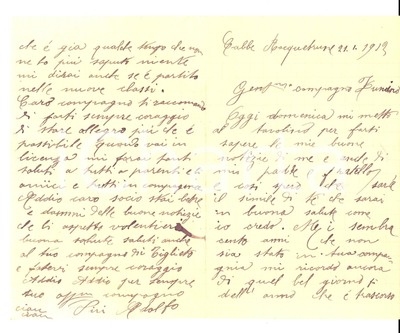 Gent.mo compagno
Oggi domenica mi metto
al tavolino per farti
sapere le mie buone
notizie di me e anche di
mio padre e fratello
e così spero che sarà
il simile di te che sarai
in buona salute come
io credo. Mi sembra
cento anni che non
sia stato in tua compa
gnia mi ricordo ancora
di quel bel giorno
dell'anno che è trascorso
che è già qualche tempo che non
ne ho più saputo niente
mi dirai anche se è partito
nelle nuove classi.
Caro compagno ti raccomando
di farti sempre coraggio
di stare allegro più che è
possibile quando vai in
licenza mi farai tanti
saluti a tutti i parenti e
amici e tutti in compagnia
Addio caro socio stai bene
e dammi delle buone notizie
che ti aspetto volentieri
buona salute saluti anche
al tuo compagno di
e fatevi sempre coraggio
Addio Addio per sempre
tuo aff.mo compagno
Piri Adolfo
ciau
ciau